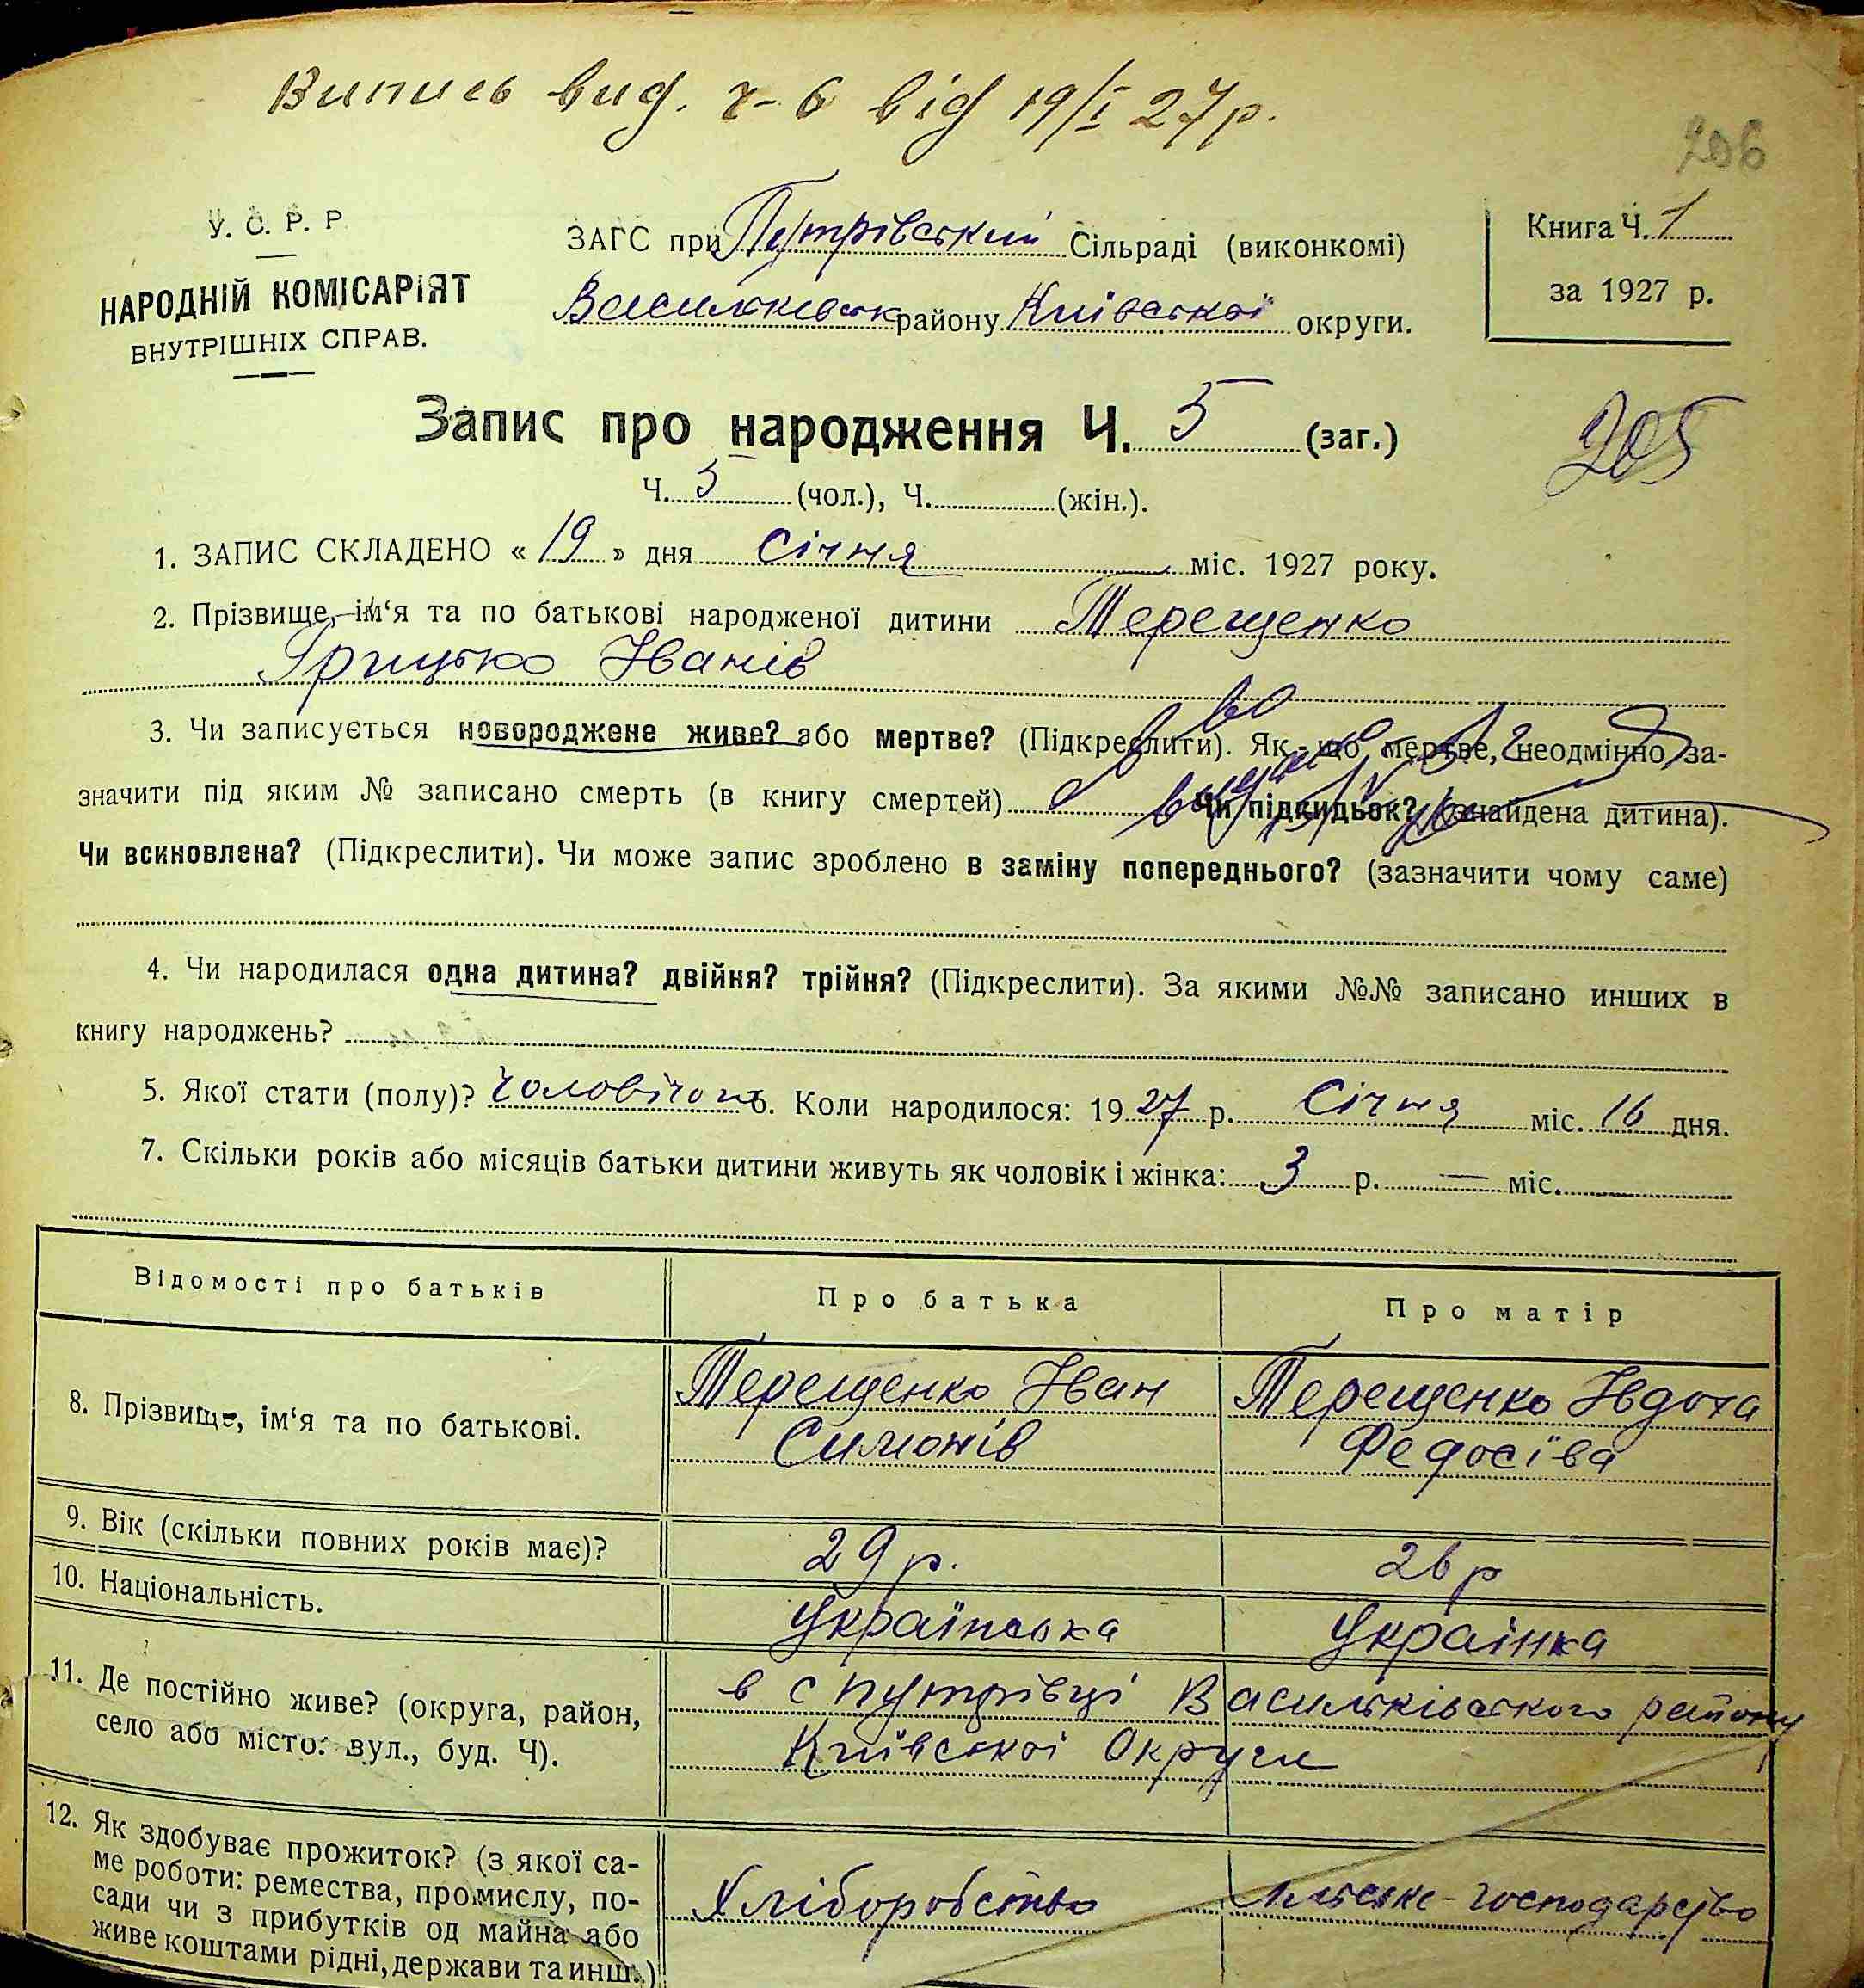 Випись вид. ч-6 від 19/I 27р.
206
У. С. Р. Р
НАРОДНІЙ КОМІСАРІЯТ
ВНУТРІШНІХ СПРАВ.
ЗАГС при Путрівський Сільраді (виконкомі)
Васильківськ району Київської округи.
Книга Ч. 1
за 1927 р.
Запис про народження Ч. 5 (заг.)
205
Ч. 5 (чол.), Ч. (жін.).
1. ЗАПИС СКЛАДЕНО « 19 » дня Січня міс. 1927 року.
2. Прізвище, ім‘я та по батькові народженої дитини Терещенко
Грицько Іванів
3. Чи записується новороджене живе? або мертве? (Підкреслити). Як-що мертве, неодмінно за-
значити під яким № записано смерть (в книгу смертей) Чи підкидьок? (знайдена дитина).
Чи всиновлена? (Підкреслити). Чи може запис зроблено в заміну попереднього? (зазначити чому саме)
4. Чи народилася одна дитина? двійня? трійня? (Підкреслити). За якими №№ записано инших в
книгу народжень?
5. Якої стати (полу)? чоловічої 6. Коли народилося: 1927 р. Січня міс. 16 дня.
7. Скільки років або місяців батьки дитини живуть як чоловік і жінка: 3 р. — міс.
Відомості про батьків
Про батька
Про матір
8. Прізвище, ім‘я та по батькові.
Терещенко Іван
Симонів
Терещенко Івдоха
Федосіїва
9. Вік (скільки повних років має)?
29 р.
26 р
10. Національність.
Українська
Українка
11. Де постійно живе? (округа, район,
село або місто: вул., буд. Ч).
в с Путрівці Васильківського району
Київської Округи
12. Як здобуває прожиток? (з якої са-
ме роботи: ремества, промислу, по-
сади чи з прибутків од майна або
живе коштами рідні, держави та инш.)
Хліборобство
господарство